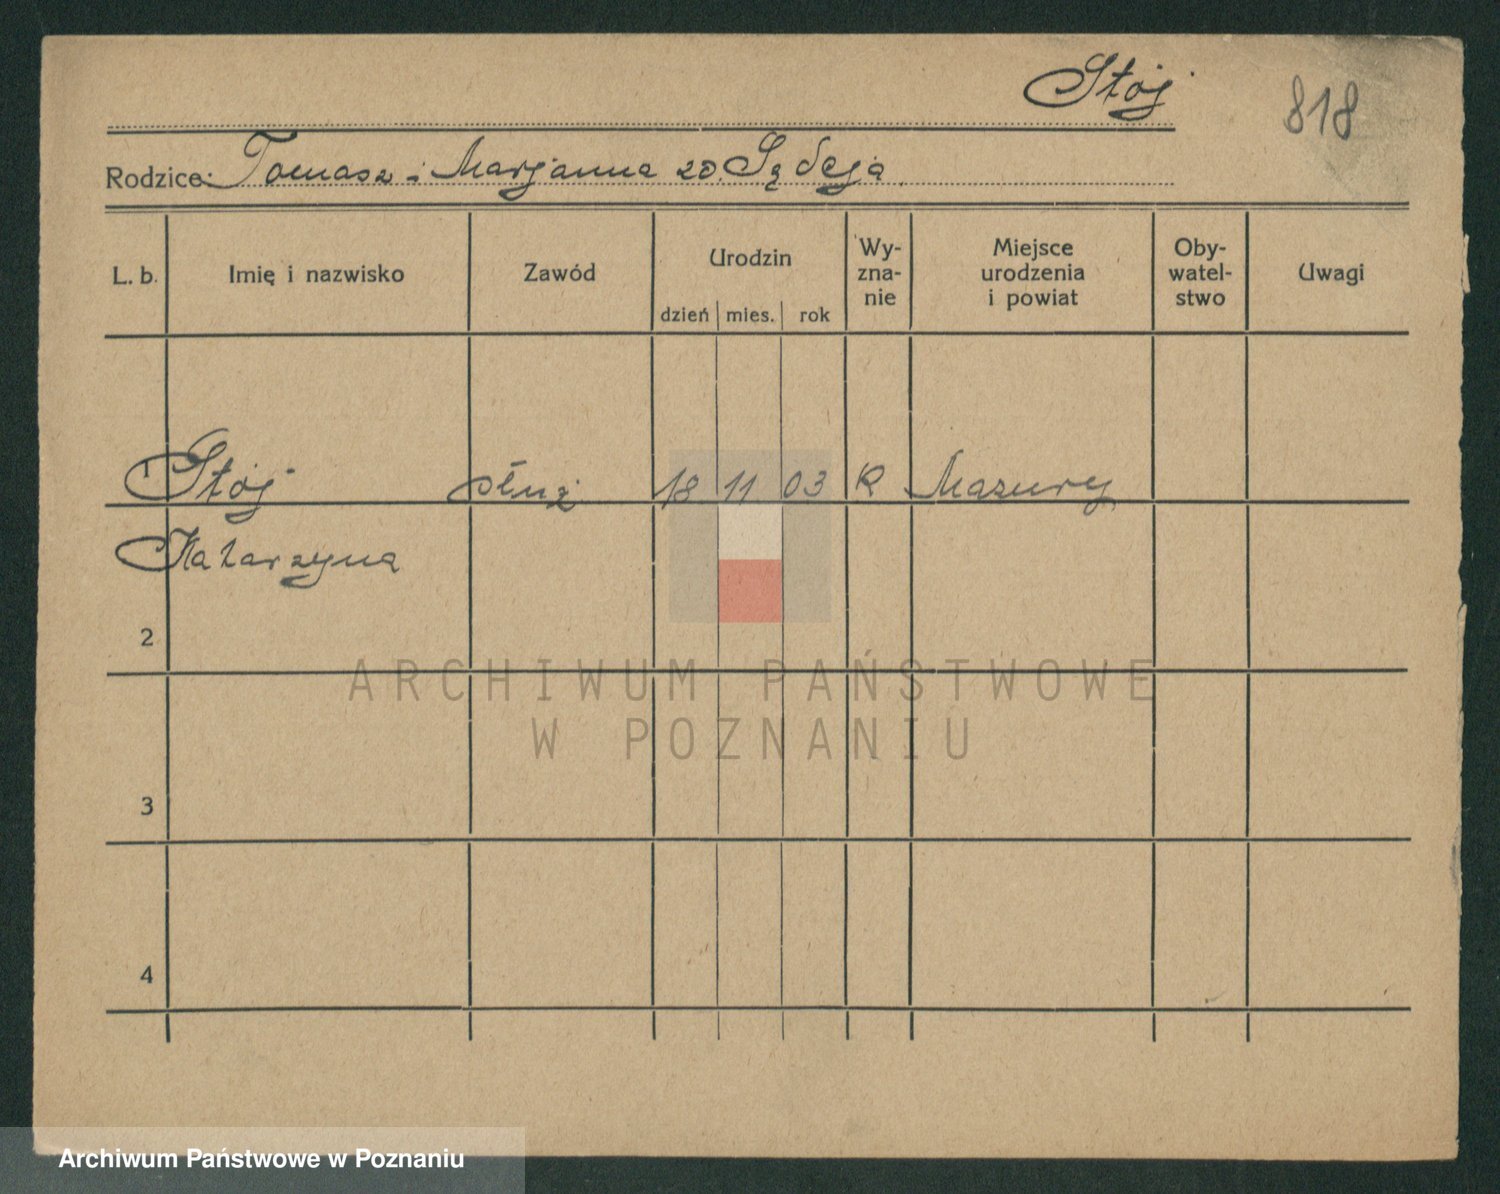 Stój 818
Rodzice: Tomasz i Marjanna zd. Sądeja
L. b. Imię i nazwisko Zawód Urodzin dzień mies. rok Wy-zna-nie Miejsce urodzenia i powiat Oby-watel-stwo Uwagi
1 Stój służ. 18 11 03 R Mazury
Katarzyna
2
ARCHIWUM PAŃSTWOWE
W POZNANIU
3
4
Archiwum Państwowe w Poznaniu